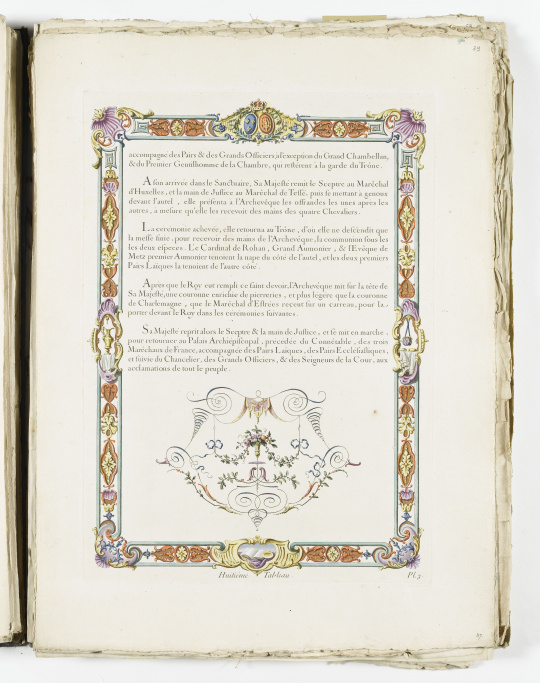 accompagné des Pairs & des Grands Officiers, a l'exception du Grand Chambellan,
& du Premier Gentilhomme de la Chambre, qui resterent à la garde du Trône.
A son arrivée dans le Sanctuaire, Sa Majesté remit le Sceptre au Maréchal
d'Huxelles, et la main de Justice au Maréchal de Tessé, puis se mettant à genoux
devant l'autel, elle presenta à l'Archevêque les offrandes les unes après les
autres, a mesure qu'elle les recevoit des mains des quatre Chevaliers.
La ceremonie achevée, elle retourna au Trône, d'où elle ne descendit que
la messe finie, pour recevoir des mains de l'Archevêque, la communion sous les
les deux especes. Le Cardinal de Rohan, Grand Aumonier, & l'Evêque de
Metz premier Aumonier tenoient la nape du côté de l'autel, et les deux premiers
Pairs Laïques la tenoient de l'autre côté.
Après que le Roy eut rempli ce saint devoir, l'Archevêque mit sur la tête de
Sa Majesté, une couronne enrichie de pierreries, et plus legere que la couronne
de Charlemagne, que le Maréchal d'Estrées reçut sur un carreau, pour la
porter devant le Roy dans les ceremonies suivantes.
Sa Majesté reprit alors le Sceptre & la main de Justice, et se mit en marche,
pour retourner au Palais Archiépiscopal, precedée du Connétable, des trois
Maréchaux de France, accompagnée des Pairs Laïques, des Pairs Ecclesiastiques,
et suivie du Chancelier, des Grands Officiers, & des Seigneurs de la Cour, aux
acclamations de tout le peuple.
Huitieme Tableau
Pl. 3